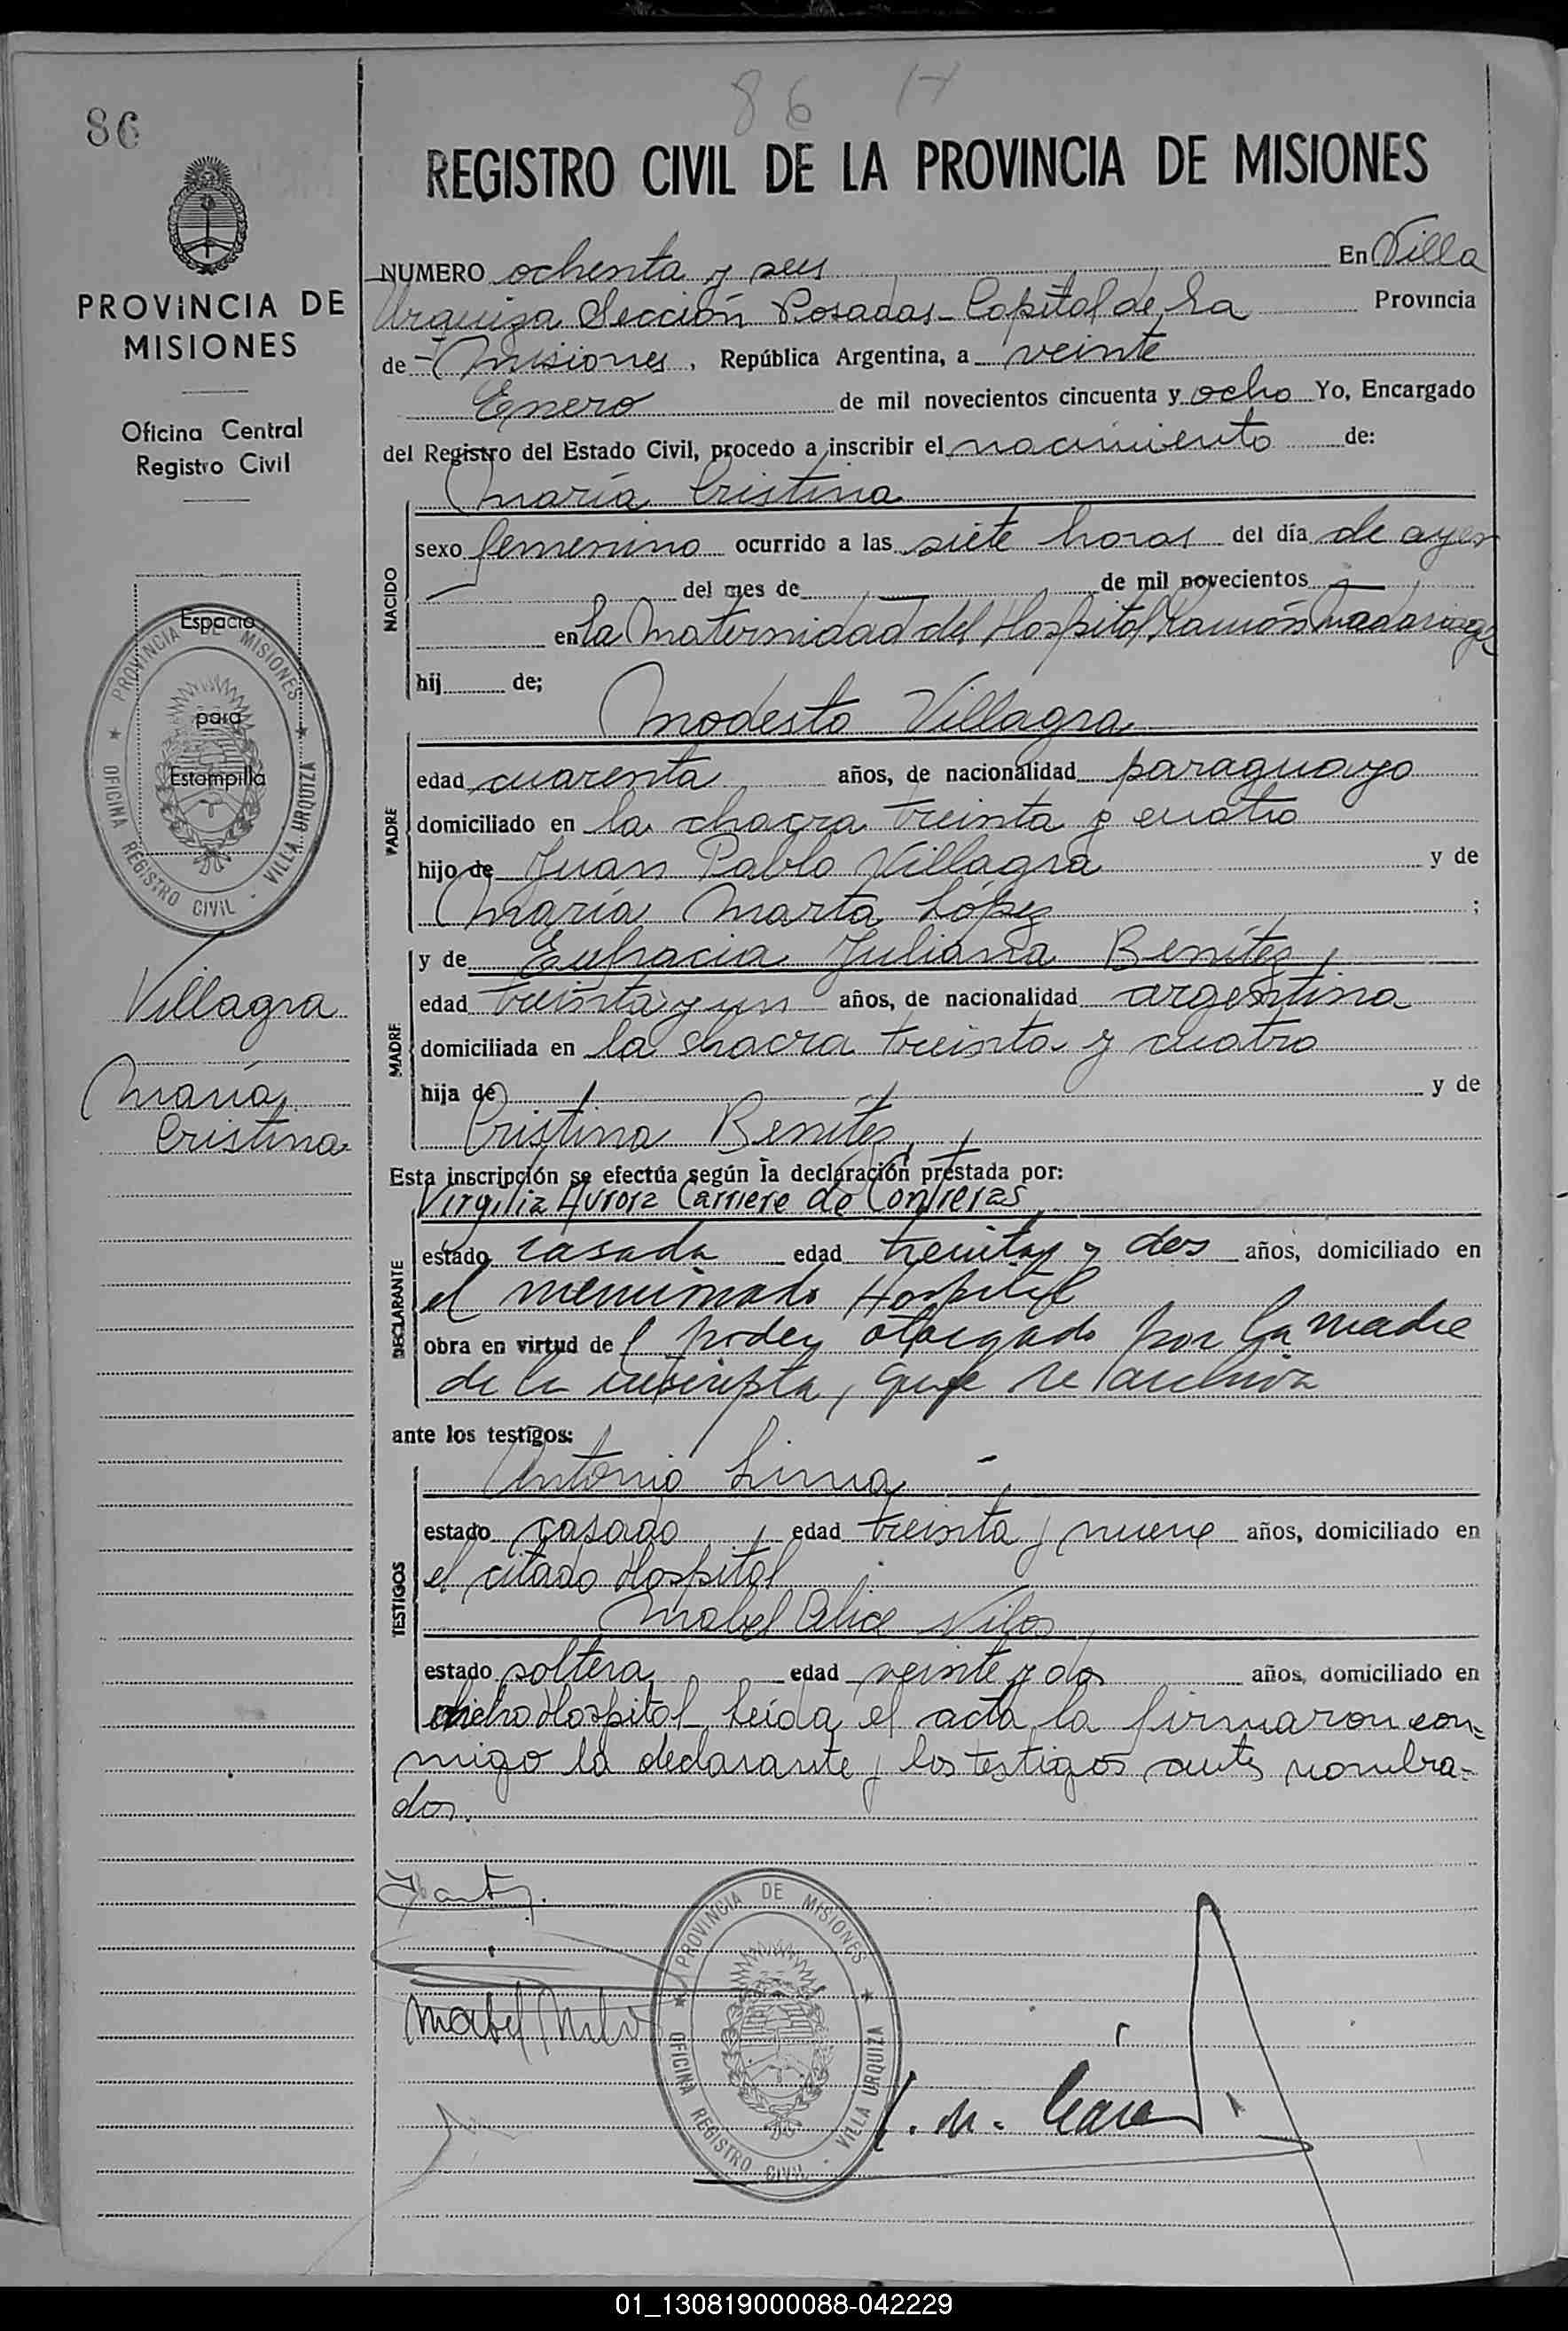 86
86 H
REGISTRO CIVIL DE LA PROVINCIA DE MISIONES
PROVINCIA DE
MISIONES
Oficina Central
Registro Civil
Espacio
para
Estampilla
PROVINCIA DE MISIONES
OFICINA REGISTRO CIVIL - VILLA URQUIZA
Villagra
María
Cristina
NUMERO ochenta y seis En Villa
Urquiza Sección Posadas - Capital de la Provincia
de Misiones, República Argentina, a veinte
Enero de mil novecientos cincuenta y ocho Yo, Encargado
del Registro del Estado Civil, procedo a inscribir el nacimiento de:
María Cristina
NACIDO
sexo femenino ocurrido a las siete horas del día de ayer
del mes de de mil novecientos
en la Maternidad del Hospital Ramón Madariaga
hij de;
Modesto Villagra
PADRE
edad cuarenta años, de nacionalidad paraguayo
domiciliado en la chacra treinta y cuatro
hijo de Juan Pablo Villagra y de
María Marta López ;
MADRE
y de Eufracia Juliana Benítez,
edad treinta y un años, de nacionalidad argentina
domiciliada en la chacra treinta y cuatro
hija de y de
Cristina Benítez,
Esta inscripción se efectúa según la declaración prestada por:
Virgilia Aurora Carriere de Contreras,
DECLARANTE
estado casada edad treinta y dos años, domiciliado en
el mencionado Hospital
obra en virtud del poder otorgado por la madre
de la inscripta, que se archiva
ante los testigos:
Antonio Lima
TESTIGOS
estado casado, edad treinta y nueve años, domiciliado en
el citado Hospital
Mabel Alice
estado soltera edad veinte y dos años, domiciliado en
dicho Hospital Leída el acta la firmaron con=
migo la declarante y los testigos antes nombra=
dos.
Mabel
PROVINCIA DE MISIONES
OFICINA REGISTRO CIVIL - VILLA URQUIZA
01_130819000088-042229